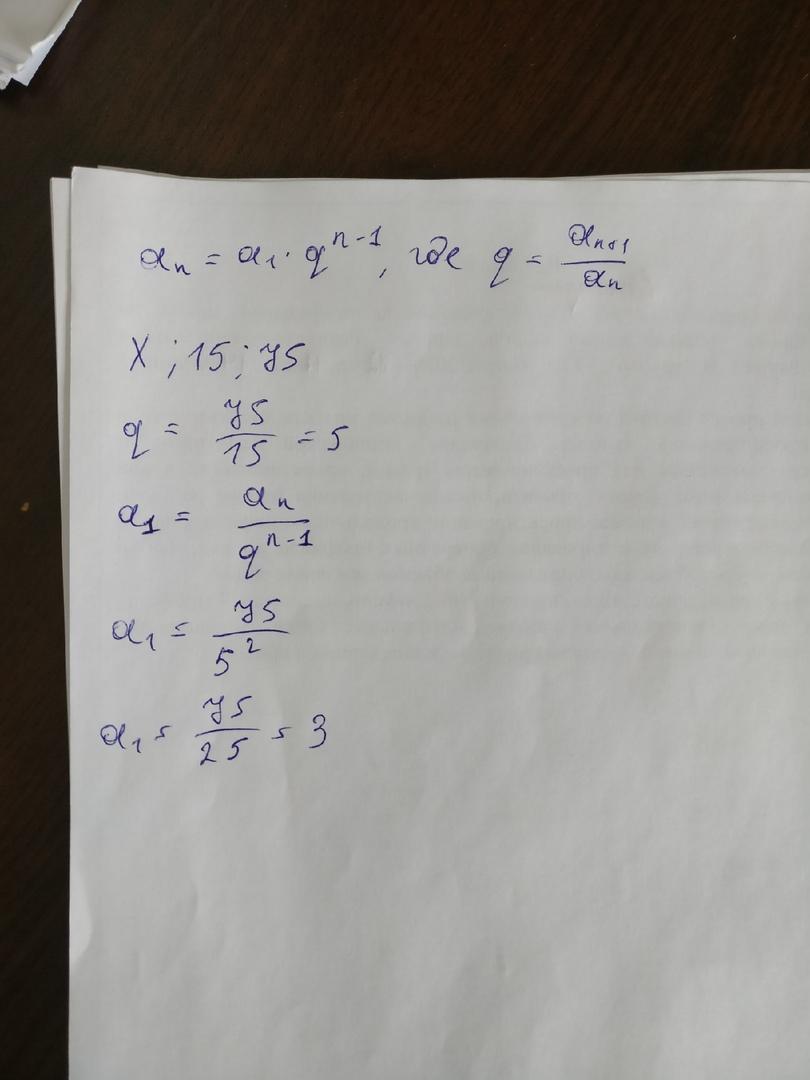 aₙ = a₁ · qⁿ⁻¹, где q = aₙ₊₁ / aₙ
X ; 15 ; 75
q = 75 / 15 = 5
a₁ = aₙ / qⁿ⁻¹
a₁ = 75 / 5²
a₁ = 75 / 25 = 3